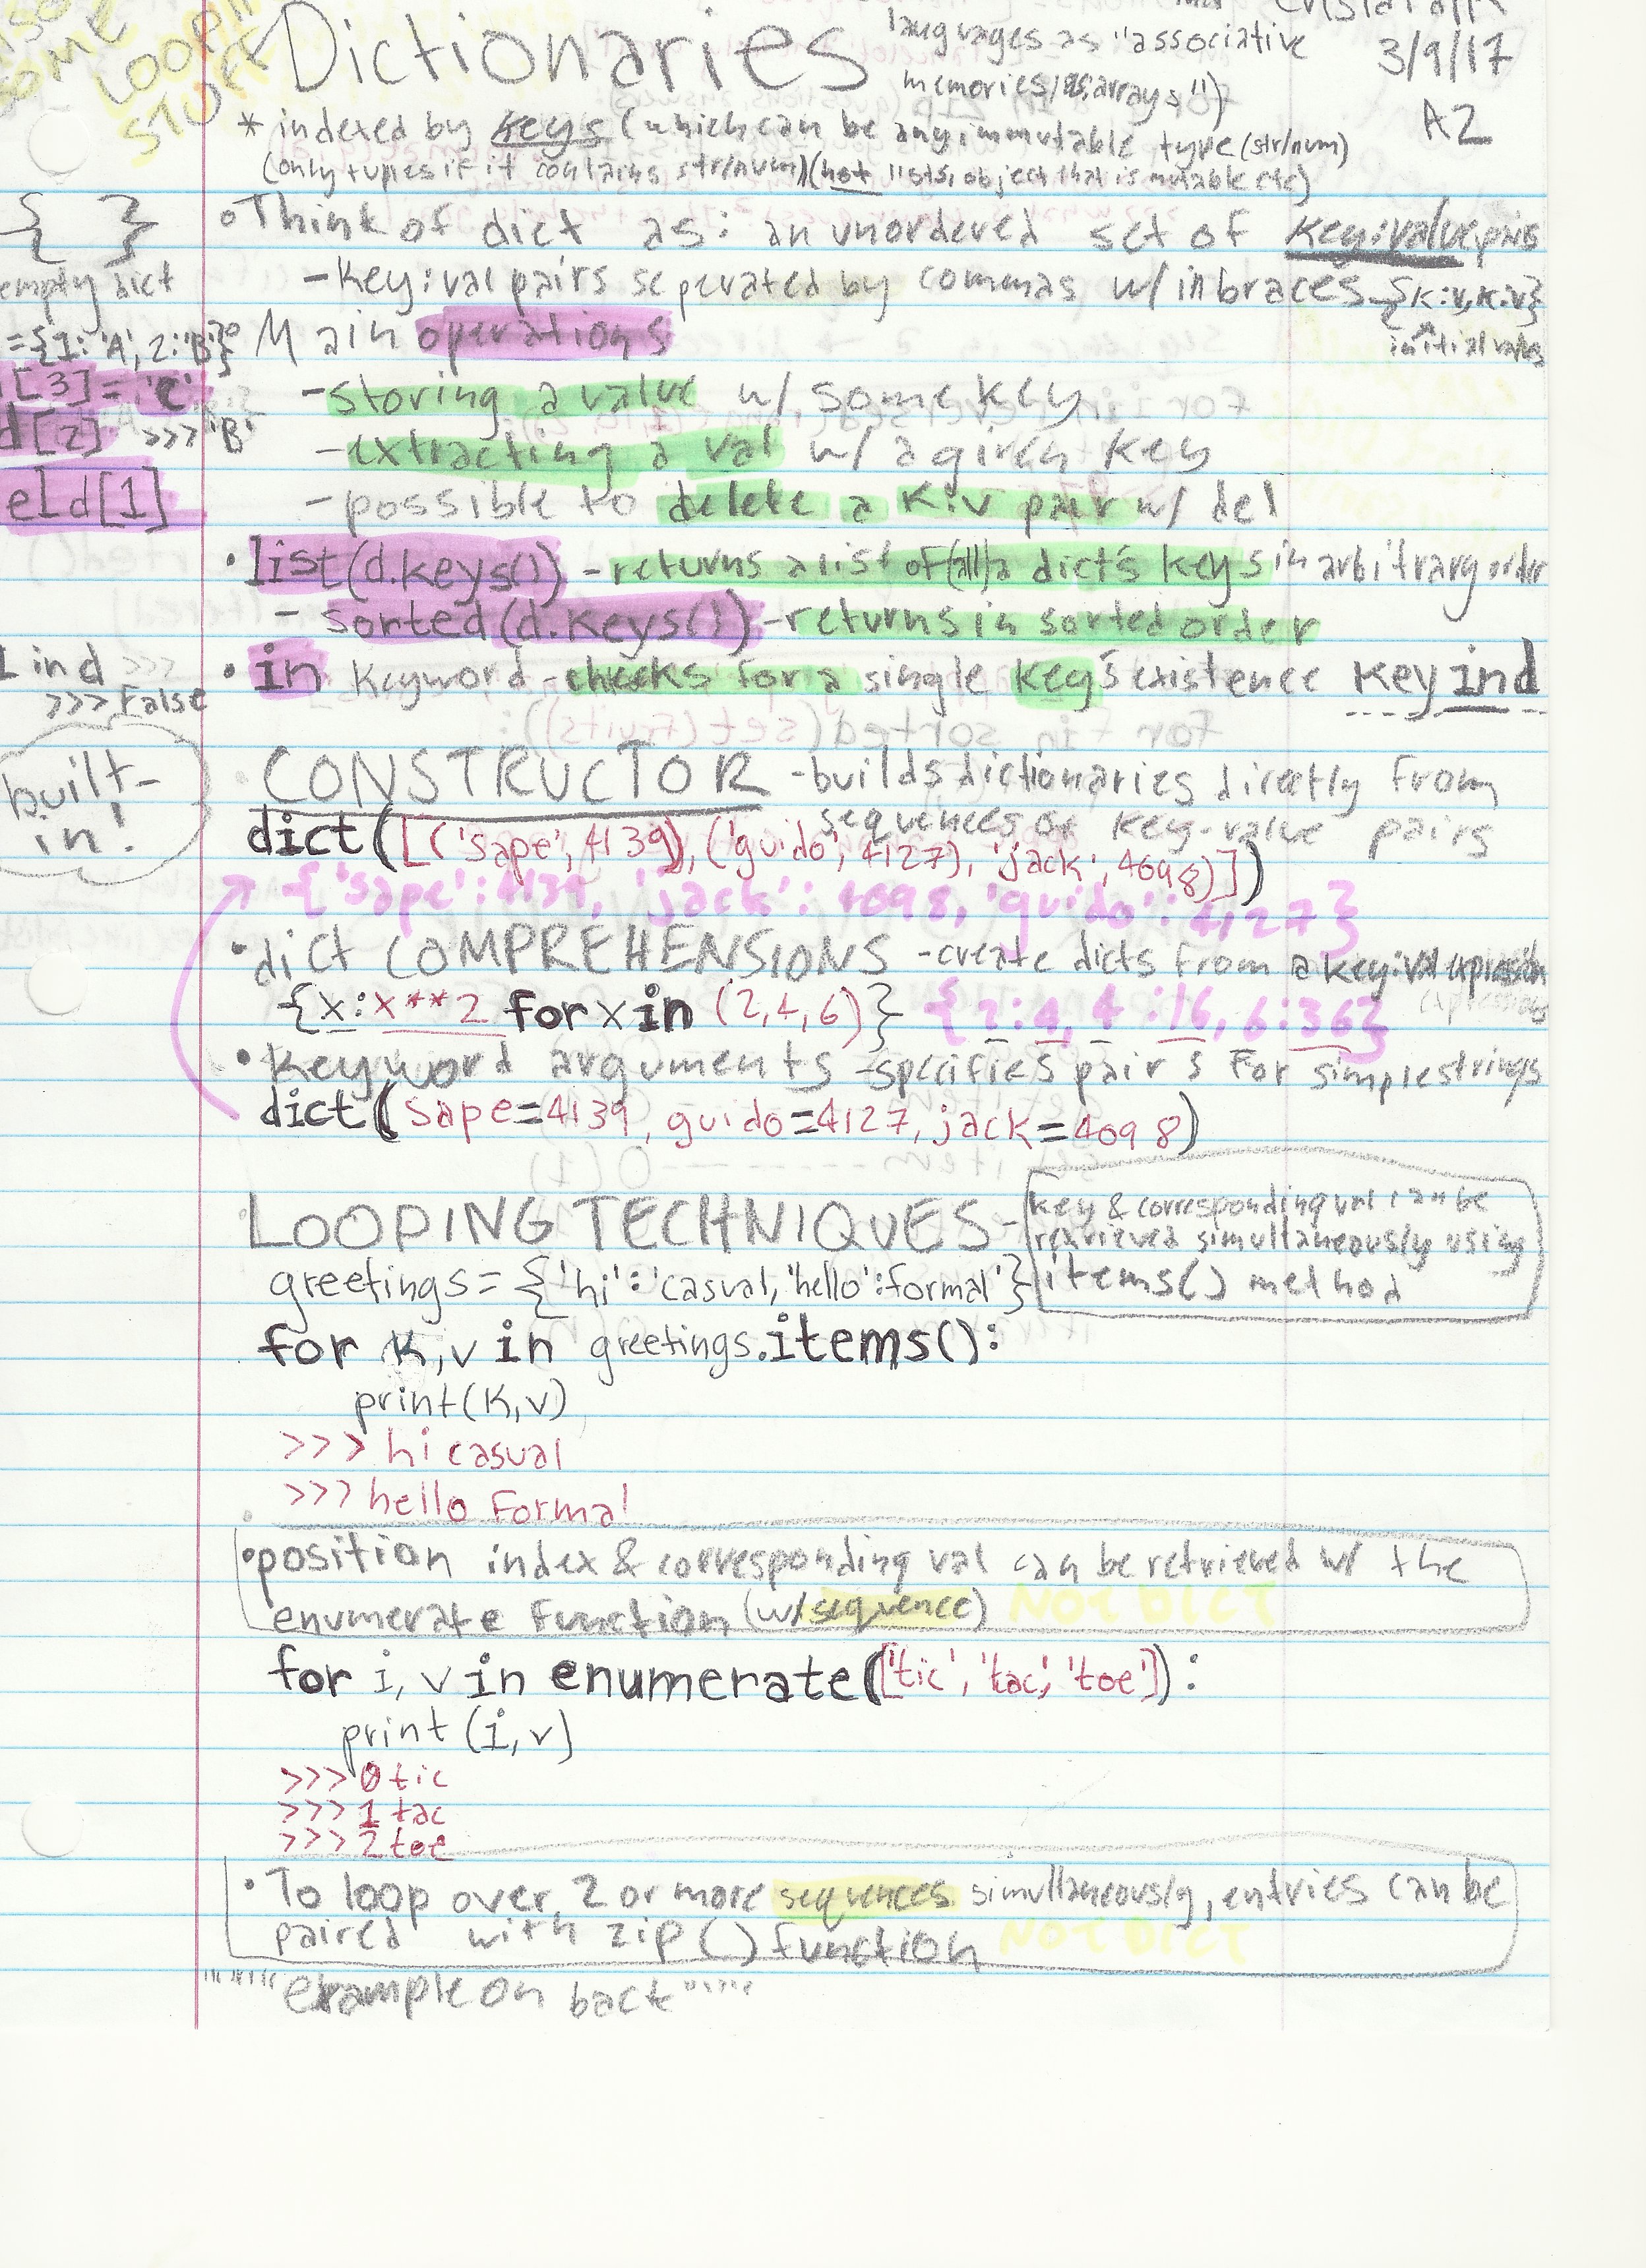 SOME
LOOPIN
STUFF
Dictionaries
languages as "associative
memories/as.arrays")
3/9/17
A2
* indexed by keys (which can be any immutable type (str/num)
(only tuples if it contains str/num)(not lists, object that is mutable etc)
{ }
empty dict
={1:'A', 2:'B'}
[3]='C'
d[2] >>>'B'
el d[1]
1 in d >>>
>>> False
built-
in!
• Think of dict as: an unordered set of key:value pairs
- key:val pairs seperated by commas w/in braces {k:v,k:v}
initial values
Main operations
- storing a value w/ some key
- extracting a val w/ a given key
- possible to delete a k:v pair w/ del
• list(d.keys()) - returns a list of (all) a dict's keys in arbitrary order
- sorted(d.keys()) - returns in sorted order
• in keyword - checks for a single key's existence key in d
CONSTRUCTOR - builds dictionaries directly from
sequences of key-value pairs
dict([('sape', 4139), ('guido', 4127), 'jack', 4098)])
{'sape':4139, 'jack': 4098, 'guido': 4127}
• dict COMPREHENSIONS - create dicts from a key:val expression
{x:x**2 for x in (2,4,6)} {2:4, 4:16, 6:36}
• Keyword arguments - specifies pairs for simple strings
dict(sape=4139, guido=4127, jack=4098)
LOOPING TECHNIQUES - key & corresponding val can be
retrieved simultaneously using
items() method
greetings={'hi':'casual,'hello':formal'}
for k,v in greetings.items():
print(k,v)
>>> hi casual
>>> hello formal
• position index & corresponding val can be retrieved w/ the
enumerate function (w/ sequence) NOT DICT
for i, v in enumerate(['tic', 'tac', 'toe']):
print (i,v)
>>> 0 tic
>>> 1 tac
>>> 2 toe
• To loop over 2 or more sequences simultaneously, entries can be
paired with zip() function NOT DICT
""""""example on back"""""